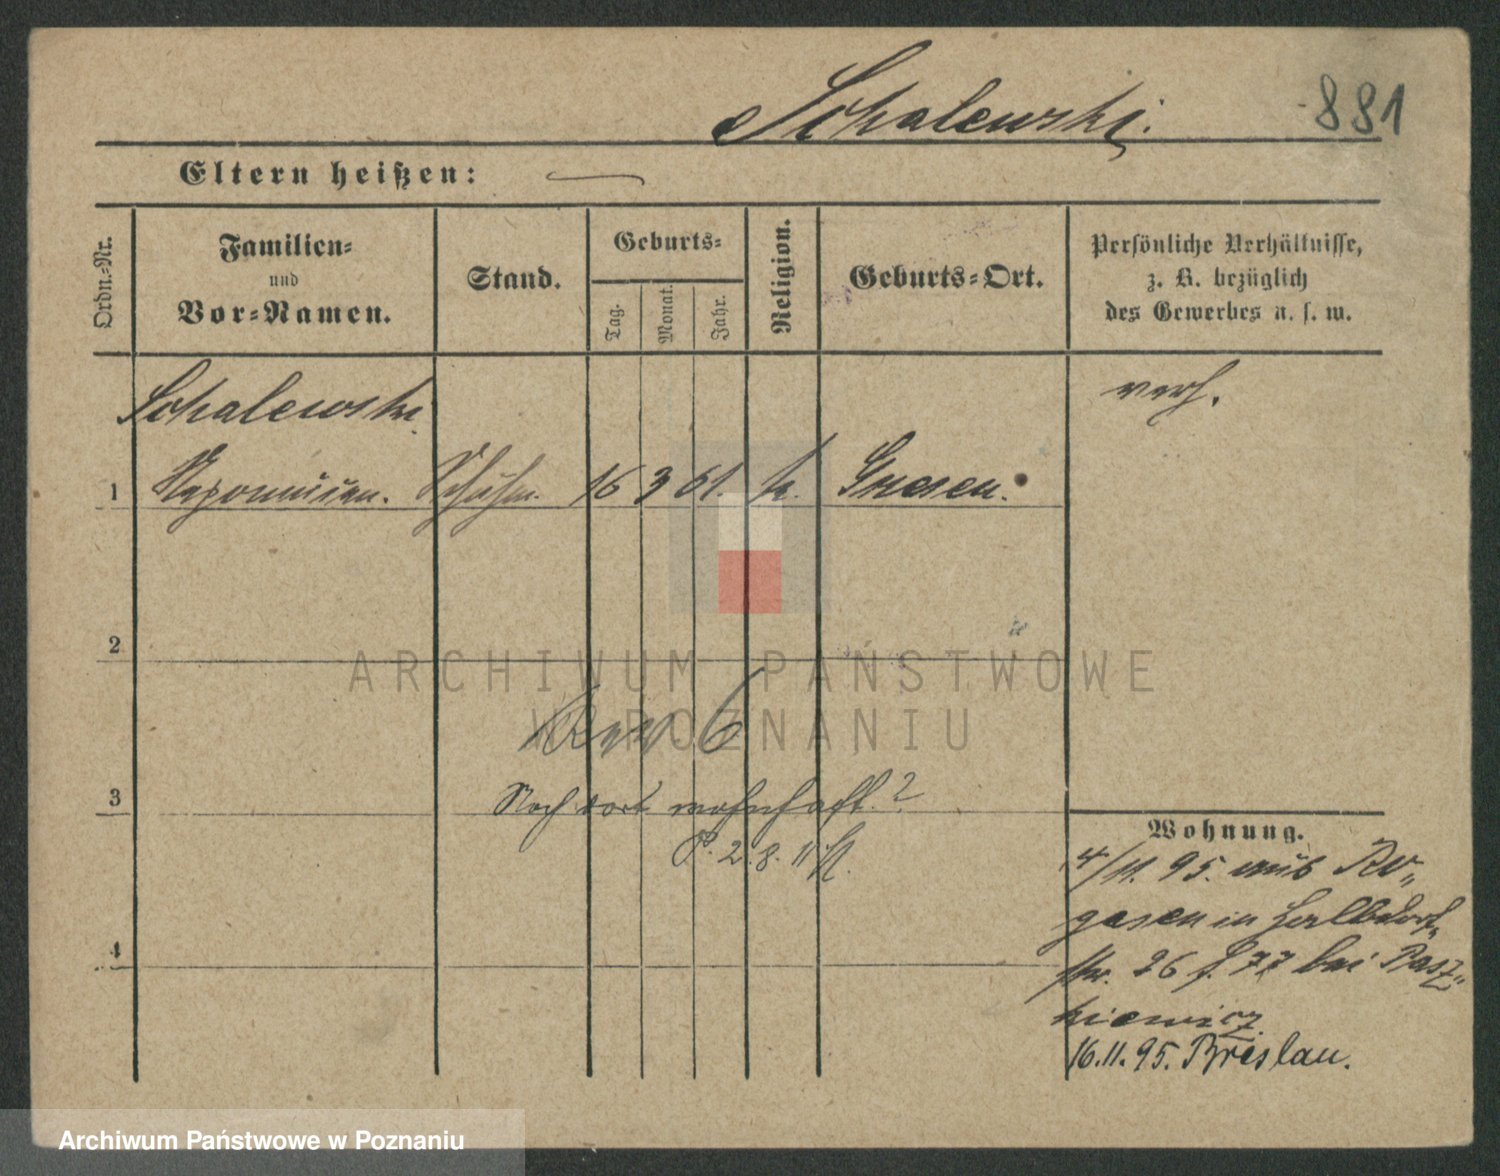 Sokalewski.
881
Eltern heißen: —
Ordn.-Nr.
Familien-
und
Vor-Namen.
Stand.
Geburts-
Tag.
Monat.
Jahr.
Religion.
Geburts-Ort.
Persönliche Verhältnisse,
z. B. bezüglich
des Gewerbes u. s. w.
verh.
Sokalewski
1
Schuhm. 16 3 61. k. Gnesen.
2
6
3
Noch dort wohnhaft?
P. 2. 8. 11
Wohnung.
4/11. 95. aus Ro„
gasen in Halbdorf„
str. 26 b. 77 bei Pasz„
kiewicz.
4
16.11.95. Breslau.
ARCHIWUM PAŃSTWOWE
W POZNANIU
Archiwum Państwowe w Poznaniu